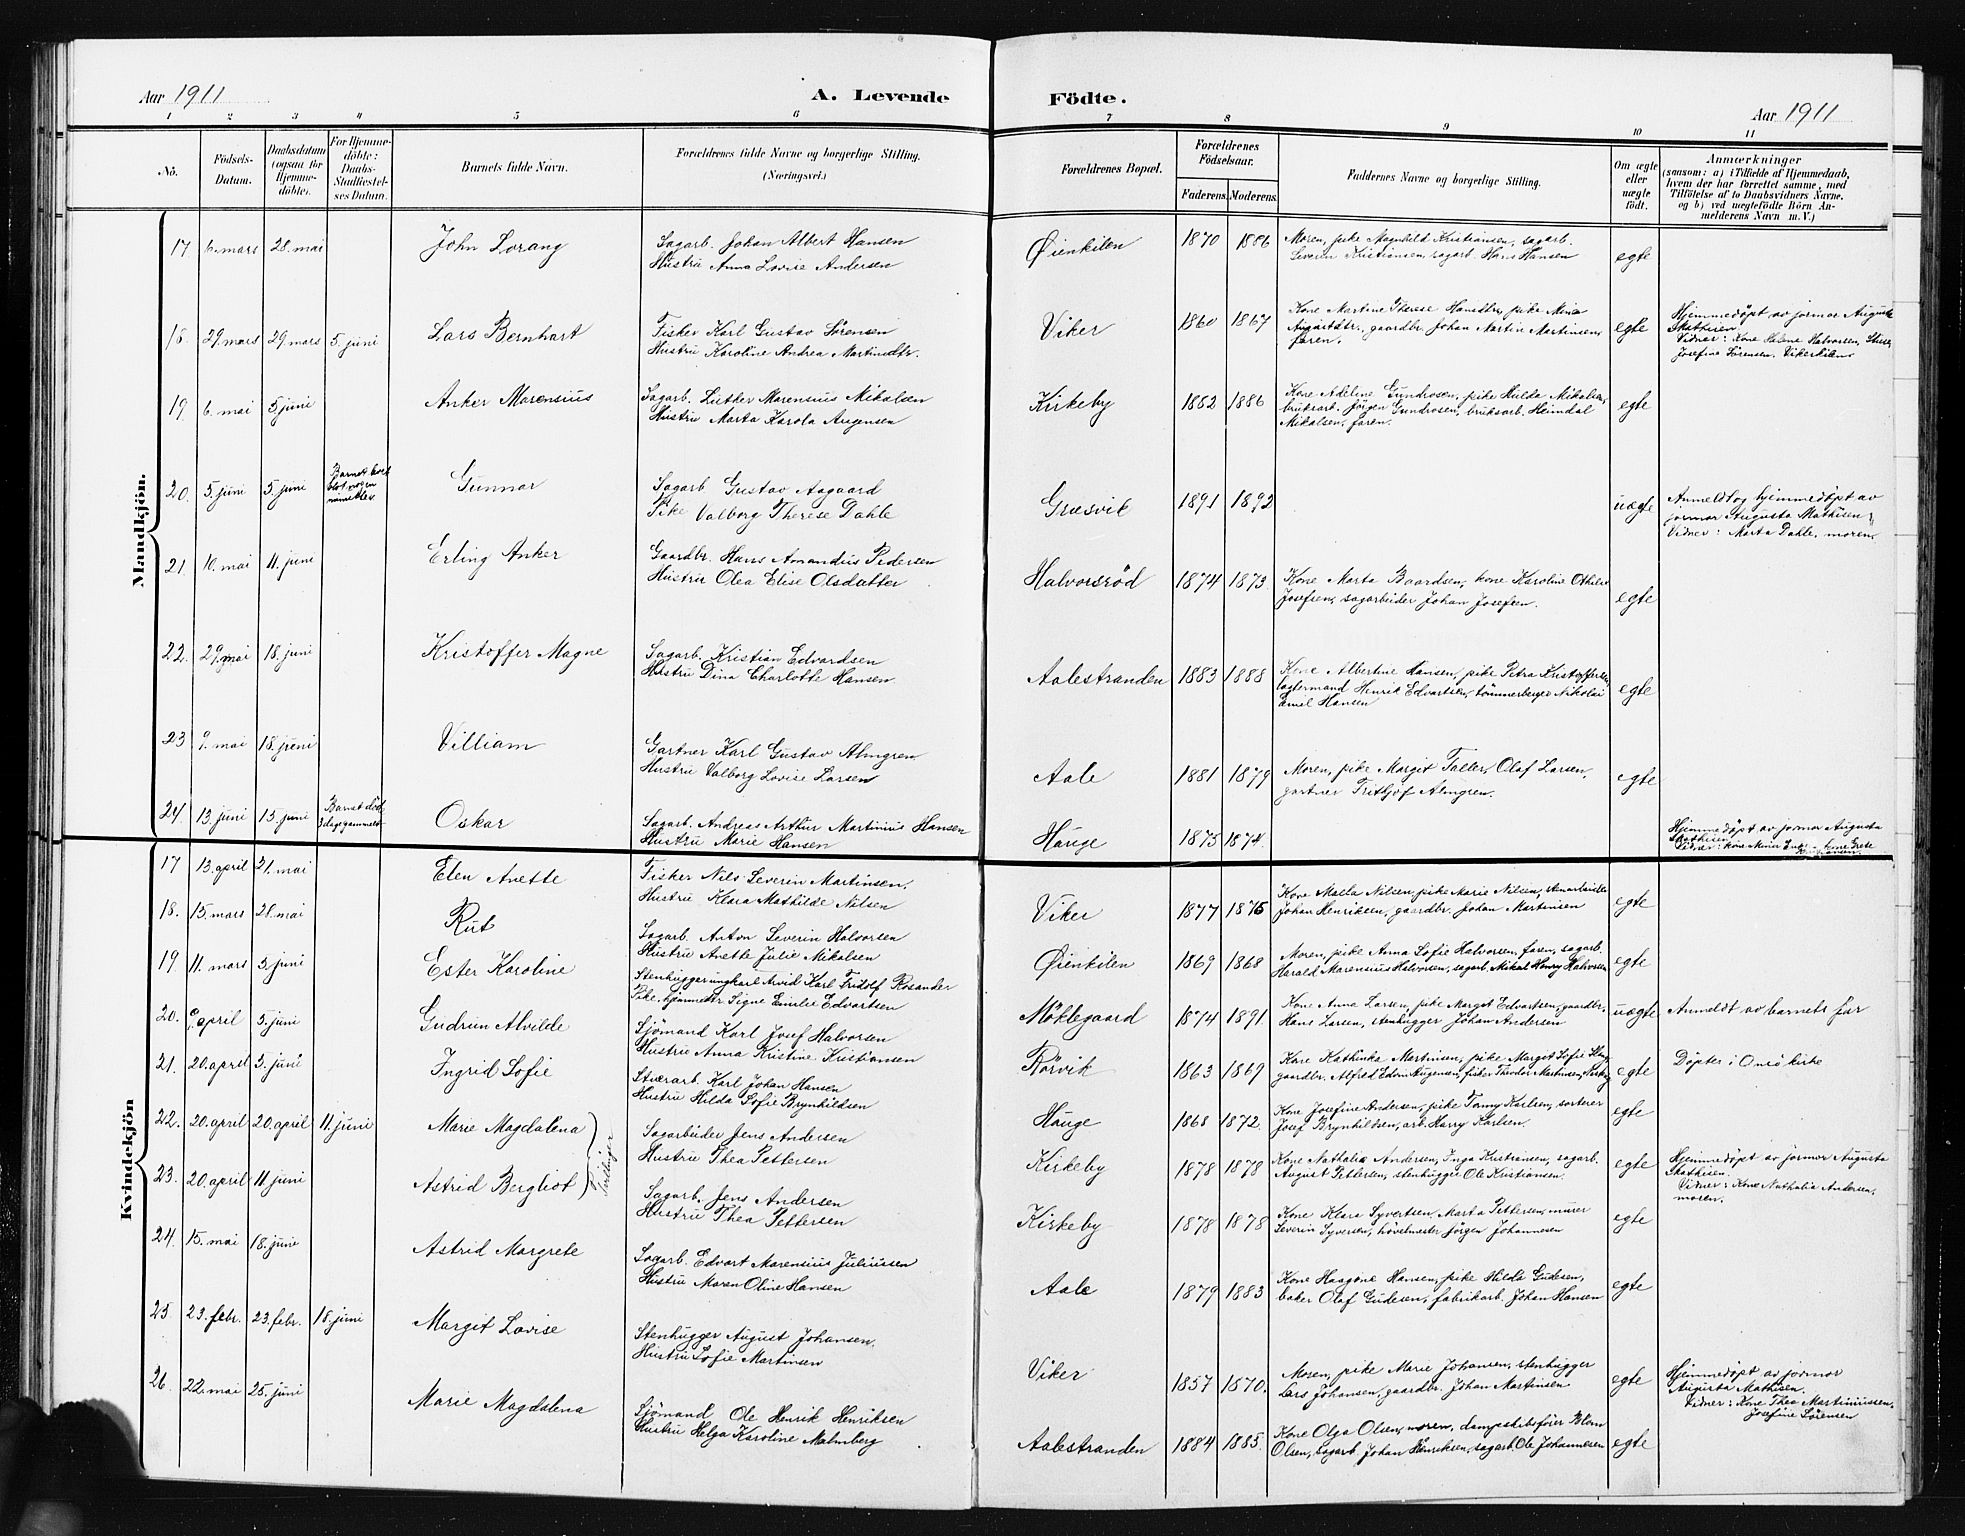 Aar 1911
A. Levende
Födte.
Aar 1911
1 2 3 4 5 6 7 8 9 10 11
No.
Födsels-Datum.
Daabsdatum (ogsaa for Hjemme-döbte).
For Hjemme-döbte: Daabs-Stadfæstel-ses Datum.
Barnets fulde Navn.
Forældrenes fulde Navne og borgerlige Stilling.
(Næringsvei.)
Forældrenes Bopæl.
Forældrenes Födselsaar.
Faderens. Moderens.
Faddernes Navne og borgerlige Stilling.
Om ægte eller uægte födt.
Anmærkninger
(saasom: a) i Tilfælde af Hjemmedaab,
hvem der har forrettet samme, med
Tilföielse af to Daabsvidners Navne.
og b) ved uægtefödte Börn An-
melderens Navn m. V.)
Mandkjön.
17 6. mars 28. mai John Lorang
Sagarb. Johan Albert Hansen
Hustru Anna Lovise Andersen
Øienkilen 1870 1886
Moren, pike Magnhild Kristiansen, sagarb.
Severin Kristiansen, sagarb. Hans Hansen
egte
18. 29. mars 29. mars 5. juni Lars Bernhart
Fisker Karl Gustav Sörensen
Hustru Karoline Andrea Martinsdtr.
Viker 1860 1867
Kone Martine Therese Hansdtr, pike Mina
Augustdtr, gaardbr. Johan Martin Martinsen,
faren.
egte
Hjemmedöpt av jormor Augusta
Mathisen.
Vidner: Kone Helene Halvorsen,
Josefine Sörensen. Vikerkilen
19 6. mai 5. juni Anker Marensius
Sagarb. Luther Marensius Mikalsen
Hustru Marta Karola Augensen
Kirkeby 1882 1886
Kone Adeline Gundrosen, pike Hulda Mikalsen,
bruksarb. Jörgen Gundrosen, bruksarb. Heimdal
Mikalsen, faren.
egte
20. 5. juni 5. juni Barnet
Gunnar
Sagarb. Gustav Aagaard
Pike Valborg Therese Dahle
Græsvik 1891 1892
uægte
Anmeldt og hjemmedöpt av
jormor Augusta Mathisen
Vidner: Marta Dahle, moren.
21. 10. mai 11. juni Erling Anker
Gaardbr. Hans Amandus Pedersen
Hustru Olea Elise Olsdatter
Halvorsröd 1874 1873.
Kone Marta Baardsen, kone Karoline Othilie
Josefsen, sagarbeider Johan Josefsen.
egte
22. 29. mai 18. juni Kristoffer Magne
Sagarb. Kristian Edvardsen
Hustru Dina Charlotte Hansen
Aalestranden 1883 1888
Kone Albertine Hansen, pike Petra Kristoffersen,
lagtermand Henrik Edvartsen, tömmerberger Nikolai
Emil Hansen
egte
23 9. mai 18. juni William
Gartner Karl Gustav Almgren
Hustru Valborg Lovise Larsen
Aale 1881 1879
Moren, pike Margit Taller, Olaf Larsen,
gartner Fritjof Almgren.
egte
24. 13. juni 15. juni Barnet död,
3 dage gammelt
Oskar
Sagarb. Andreas Arthur Martinius Hansen
Hustru Marie Hansen
Hauge 1875 1874.
Hjemmedöpt av jormor Augusta
Mathisen.
Kvindekjön
17 13. april 21. mai Elen Anette
Fisker Nils Severin Martinsen.
Hustru Klara Mathilde Nilsen
Viker 1877 1875
Kone Malla Nilsen, pike Marie Nilsen, stenarbeider
Johan Henriksen, gaardbr. Johan Martinsen
egte
18. 15. mars 28. mai Rut
Sagarb. Anton Severin Halvorsen
Hustru Anette Julie Mikalsen
Øienkilen 1869 1868
Moren, pike Anna Sofie Halvorsen, faren, sagarb.
Harald Marensius Halvorsen, sagarb. Mikal Henry Halvorsen
egte
19 11. mars 5. juni Ester Karoline
Stenhugger ungkarl Arvid Karl Fridolf Rosander
Pike, hjemmedtr Signe Emilie Edvartsen
Möklegaard 1874 1891.
Kone Anna Larsen, pike Margit Edvartsen, gaardbr.
Hans Larsen, stenhugger Johan Andersen
uægte
Anmeldt av barnets far
20. 9. april 5. juni Gudrun Alvilde
Sjömand Karl Josef Halvorsen
Hustru Anna Kristine Kristiansen
Rörvik 1863 1869
Kone Kathinka Martinsen, pike Margot Sofie
gaardbr. Alfred Edvin Augensen, fisker Theodor Martinsen,
egte
Döpter i Onsö kirke
21. 20. april 5. juni Ingrid Sofie
Stuerarb. Karl Johan Hansen
Hustru Hilda Sofie Brynhildsen
Hauge 1868 1872.
Kone Josefine Andersen, pike Tomy Karlsen, sorterer
Josef Brynhildsen, arb. Harry Karlsen.
egte
22. 20. april 20. april 11. juni Marie Magdalena
Tvillinger
Sagarbeider Jens Andersen
Hustru Thea Pettersen
Kirkeby 1878 1878
Kone Nathalia Andersen, Inga Kristiansen, sagarb.
August Pettersen, stenhugger Ole Kristiansen.
egte
Hjemmedöpt av jormor Augusta
Mathisen.
Vidner: Kone Nathalia Andersen,
moren.
23. 20. april 11. juni Astrid Bergliot
Sagarb. Jens Andersen
Hustru Thea Pettersen
Kirkeby 1878 1878
Kone Klara Syvertsen, Marta Pettersen, murer
Severin Syversen, hövelmester Jörgen Johannesen
egte
24. 15. mai 18. juni Astrid Margrete
Sagarb. Edvart Marensius Juliussen
Hustru Maren Oline Hansen
Aale 1879 1883
Kone Haagine Hansen, pike Hilda Gudesen,
baker Olaf Gudesen, fabrikarb. Johan Hansen
egte
25. 23. febr. 23. febr. 18. juni Margit Lovise
Stenhugger August Johansen.
Hustru Sofie Martinsen
Viker 1857 1870.
Moren, pike Marie Johansen, stenhugger
Lars Johansen, gaardbr. Johan Martinsen
egte
Hjemmedöpt av jormor
Augusta Mathisen.
Vidner: Kone Thea Martiniussen,
Josefine Sörensen
26. 22. mai 25. juni Marie Magdalena
Sjömand Ole Henrik Henriksen
Hustru Helga Karoline Malmberg
Aalestranden 1884 1885.
Kone Olga Olsen, moren, dampskibsförer Blom
Olsen, sagarb. Johan Henriksen, sagarb. Ole Johannesen
egte